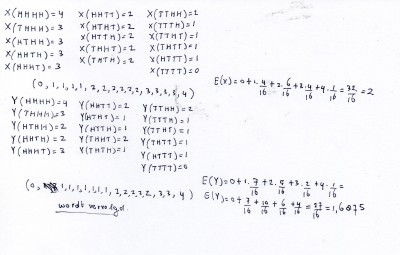 X(HHHH)=4 X(HHTT)=2 X(TTHH)=2
X(THHH)=3 X(HTHT)=2 X(TTTH)=1
X(HTHH)=3 X(HTTH)=2 X(TTHT)=1
X(HHTH)=3 X(THHT)=2 X(THTT)=1
X(HHHT)=3 X(THTH)=2 X(HTTT)=1
X(TTTT)=0
(0, 1, 1, 1, 1, 2, 2, 2, 2, 2, 2, 3, 3, 3, 3, 4)
E(X)=0+1.4/16+2.6/16+3.4/16+4.1/16=32/16=2
Y(HHHH)=4 Y(HHTT)=2 Y(TTHH)=2
Y(THHH)=3 Y(HTHT)=1 Y(TTTH)=1
Y(HTHH)=2 Y(HTTH)=1 Y(TTHT)=1
Y(HHTH)=2 Y(THHT)=2 Y(THTT)=1
Y(HHHT)=3 Y(THTH)=1 Y(HTTT)=1
Y(TTTT)=0
(0, 1, 1, 1, 1, 1, 1, 1, 2, 2, 2, 2, 2, 3, 3, 4)
wordt vervolgd.
E(Y)=0+1.7/16+2.5/16+3.2/16+4.1/16=
E(Y)=0+7/16+10/16+6/16+4/16=27/16=1,6875